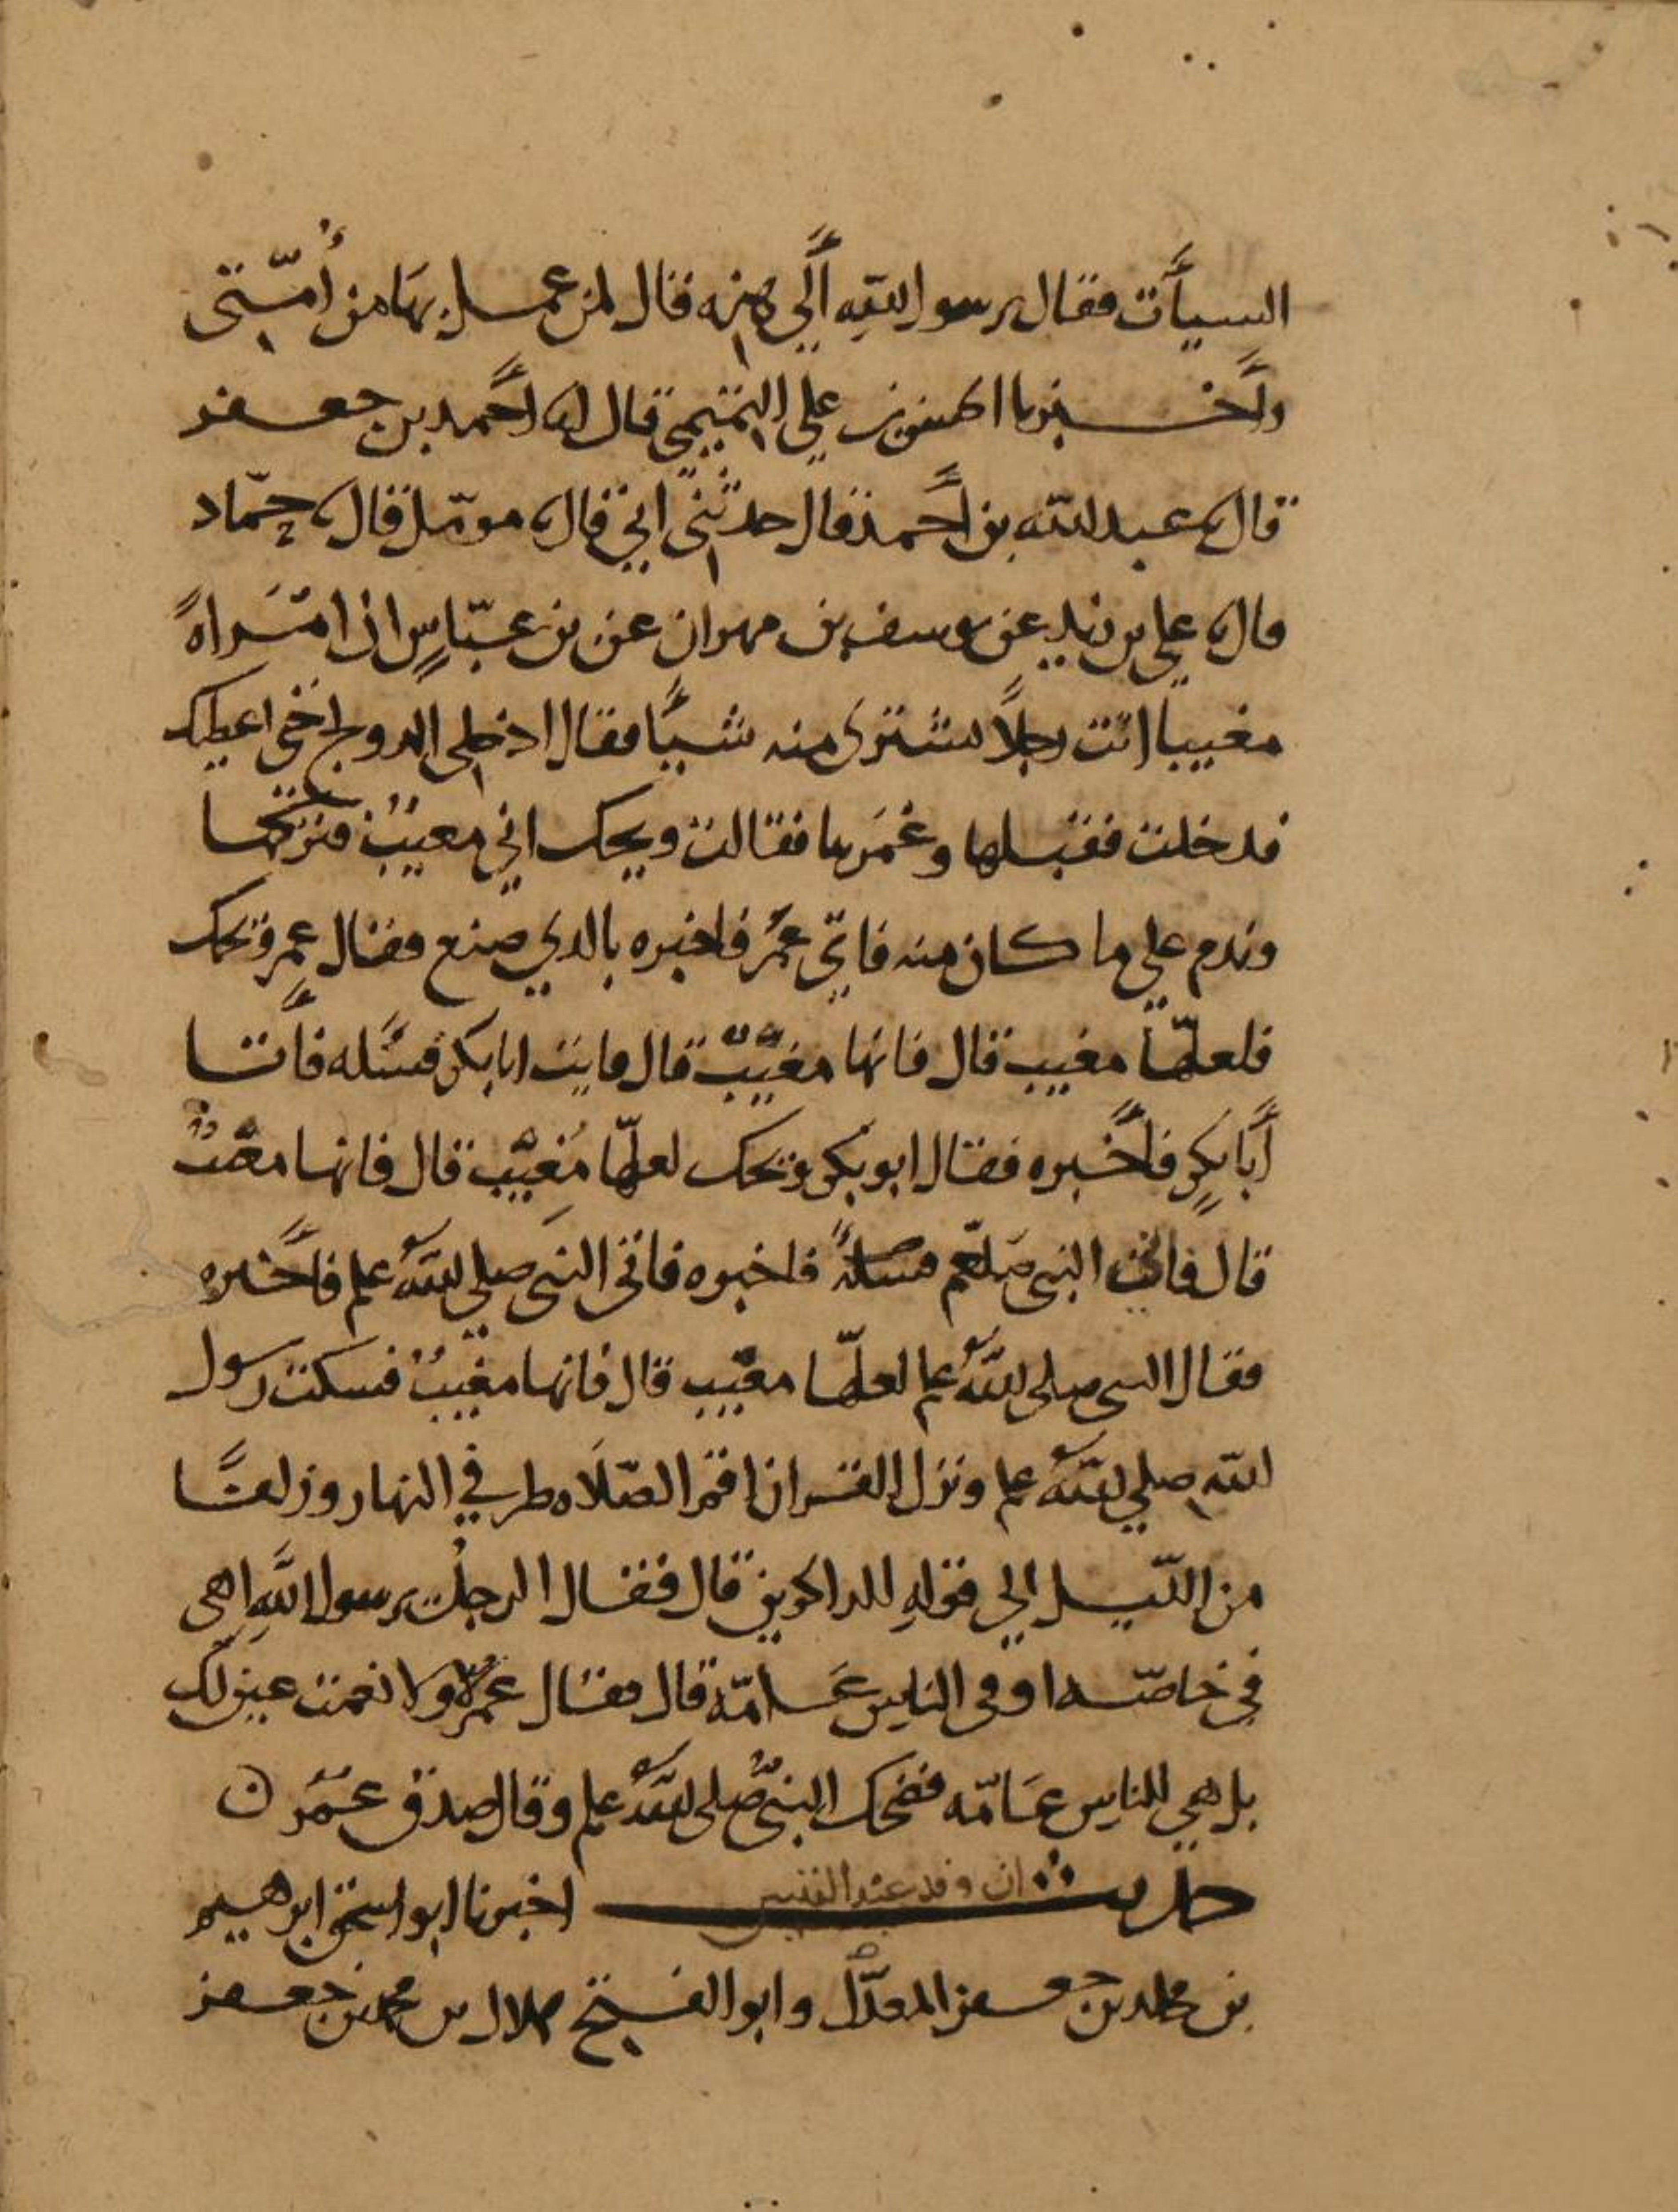 السيأت فقال يرسول الله ألي هذه قال لمن عمل بها من أمتي
وأخبرنا الحسن بن علي التميمي قال انا أحمد بن جعفر
قال نا عبد الله بن أحمد قال حدثني ابي قال نا مومل قال نا حماد
قال نا علي بن زيد عن يوسف بن مهران عن بن عباس ان امراه
مغيبا اتت رجلا تشتري منه شيئا فقال ادخلي الدولج حتى اعطيك
فدخلت فقبلها وغمزها فقالت ويحك اني مغيب فتركها
وندم علي ما كان منه فاتي عمر فاخبره بالدي صنع فقال عمر ويحك
فلعلها مغيب قال فانها مغيب قال فايت ابا بكر فسله فأتا
أبا بكر فأخبره فقال ابو بكر ويحك لعلها مغيب قال فانها مغيب
قال فائت النبي صلعم فسله فاخبره فاتى النبي صلي الله علم فأخبره
فقال النبي صلى الله علم لعلها مغيب قال فانها مغيب فسكت رسول
الله صلي الله علم ونزل القران اقم الصلاه طرفي النهار وزلفا
من الليل الي قوله للداكرين قال فقال الرجل يرسول الله اهي
في خاصه او في الناس عامة قال فقال عمر لا ولا نعمت عين لك
بل هي للناس عامه فضحك النبي صلى الله علم وقال صدق عمر ن
حديث ان وفد عبد القيس اخبرنا ابو اسحق ابرهيم
بن محمد بن جعفر المعدل وابو الفتح هلال بن محمد بن جعفر